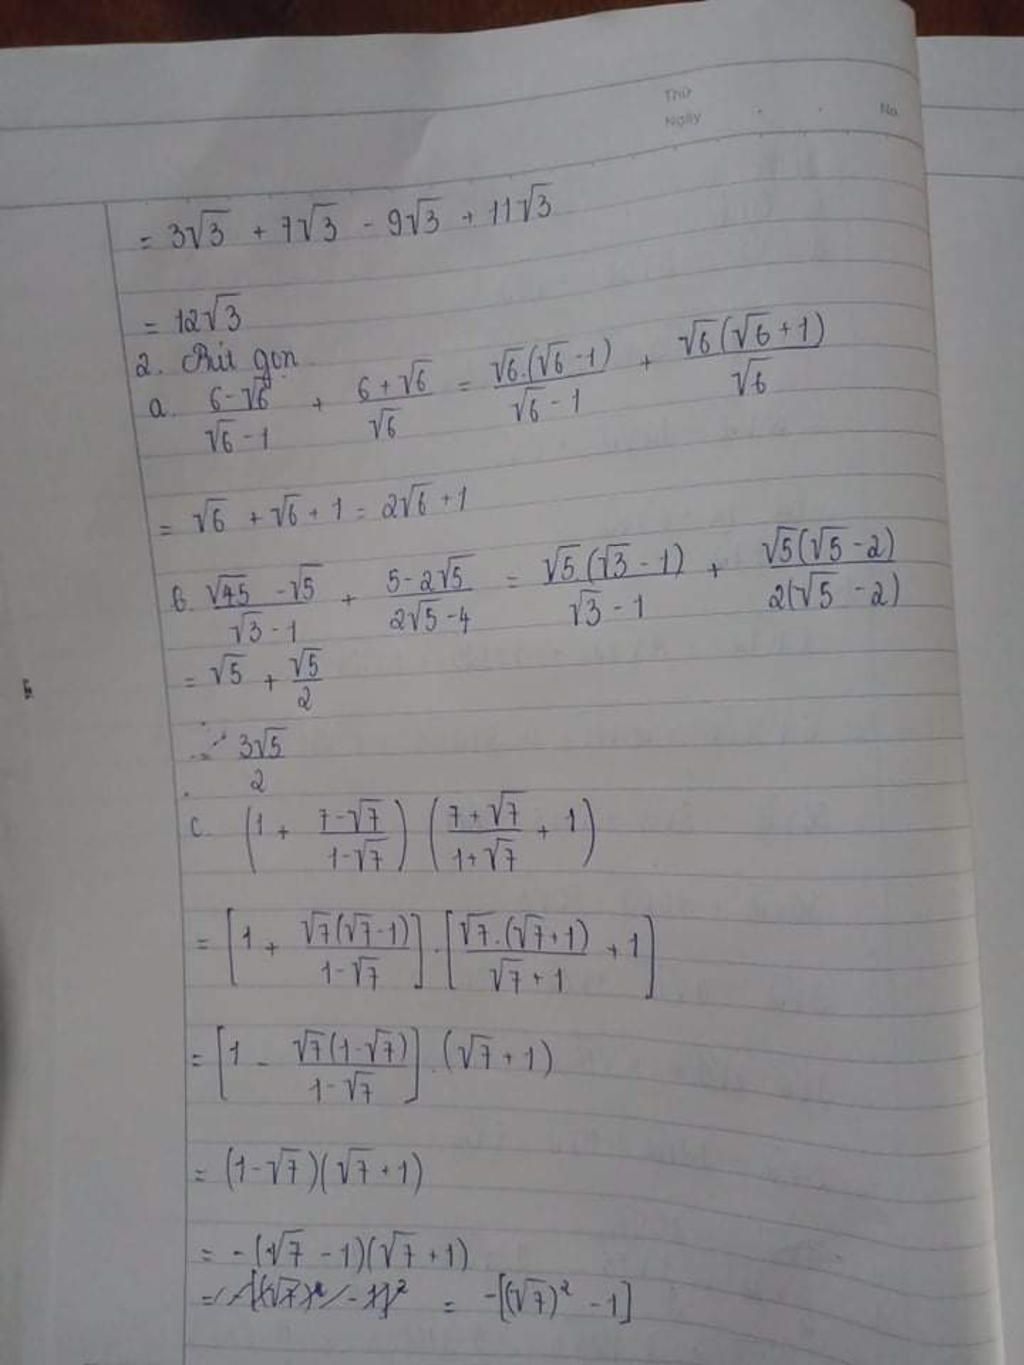 Thứ
Ngày . . No.
= 3√3 + 7√3 - 9√3 + 11√3
= 12√3
2. Rút gọn
a. (6-√6)/(√6-1) + (6+√6)/√6 = √6.(√6-1)/(√6-1) + √6(√6+1)/√6
= √6 + √6 + 1 = 2√6 + 1
b. (√45-√5)/(√3-1) + (5-2√5)/(2√5-4) = √5.(√3-1)/(√3-1) + √5(√5-2)/2(√5-2)
= √5 + √5/2
= 3√5/2
c. (1 + (7-√7)/(1-√7)) ((7+√7)/(1+√7) + 1)
= [1 + √7(√7-1)/(1-√7)] . [√7.(√7+1)/(√7+1) + 1]
= [1 - √7(1-√7)/(1-√7)] . (√7+1)
= (1-√7)(√7+1)
= -(√7-1)(√7+1)
= -[(√7)² - 1]